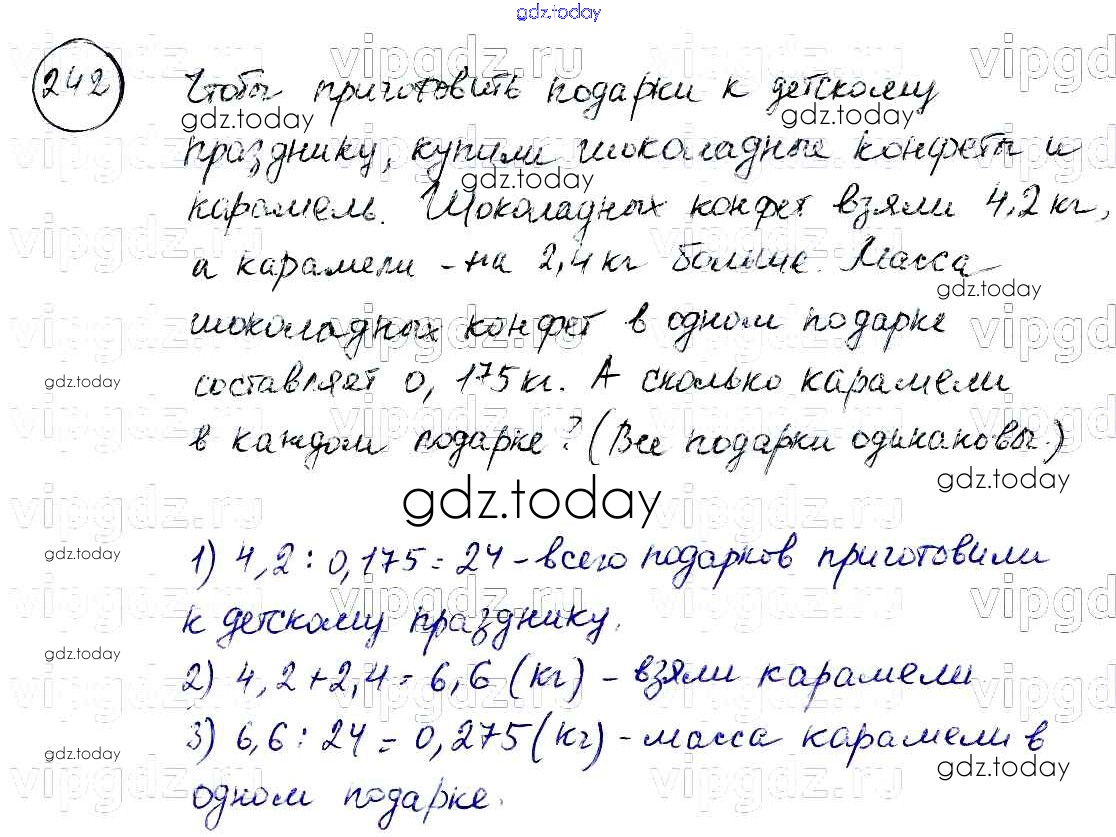 gdz.today
242 Чтобы приготовить подарки к детскому
празднику, купили шоколадные конфеты и
карамель. Шоколадных конфет взяли 4,2 кг,
а карамели - на 2,4 кг больше. Масса
шоколадных конфет в одном подарке
составляет 0,175 кг. А сколько карамели
в каждом подарке? (Все подарки одинаковы.)
gdz.today
1) 4,2 : 0,175 = 24 - всего подарков приготовили
к детскому празднику.
2) 4,2 + 2,4 = 6,6 (кг) - взяли карамели
3) 6,6 : 24 = 0,275 (кг) - масса карамели в
одном подарке.